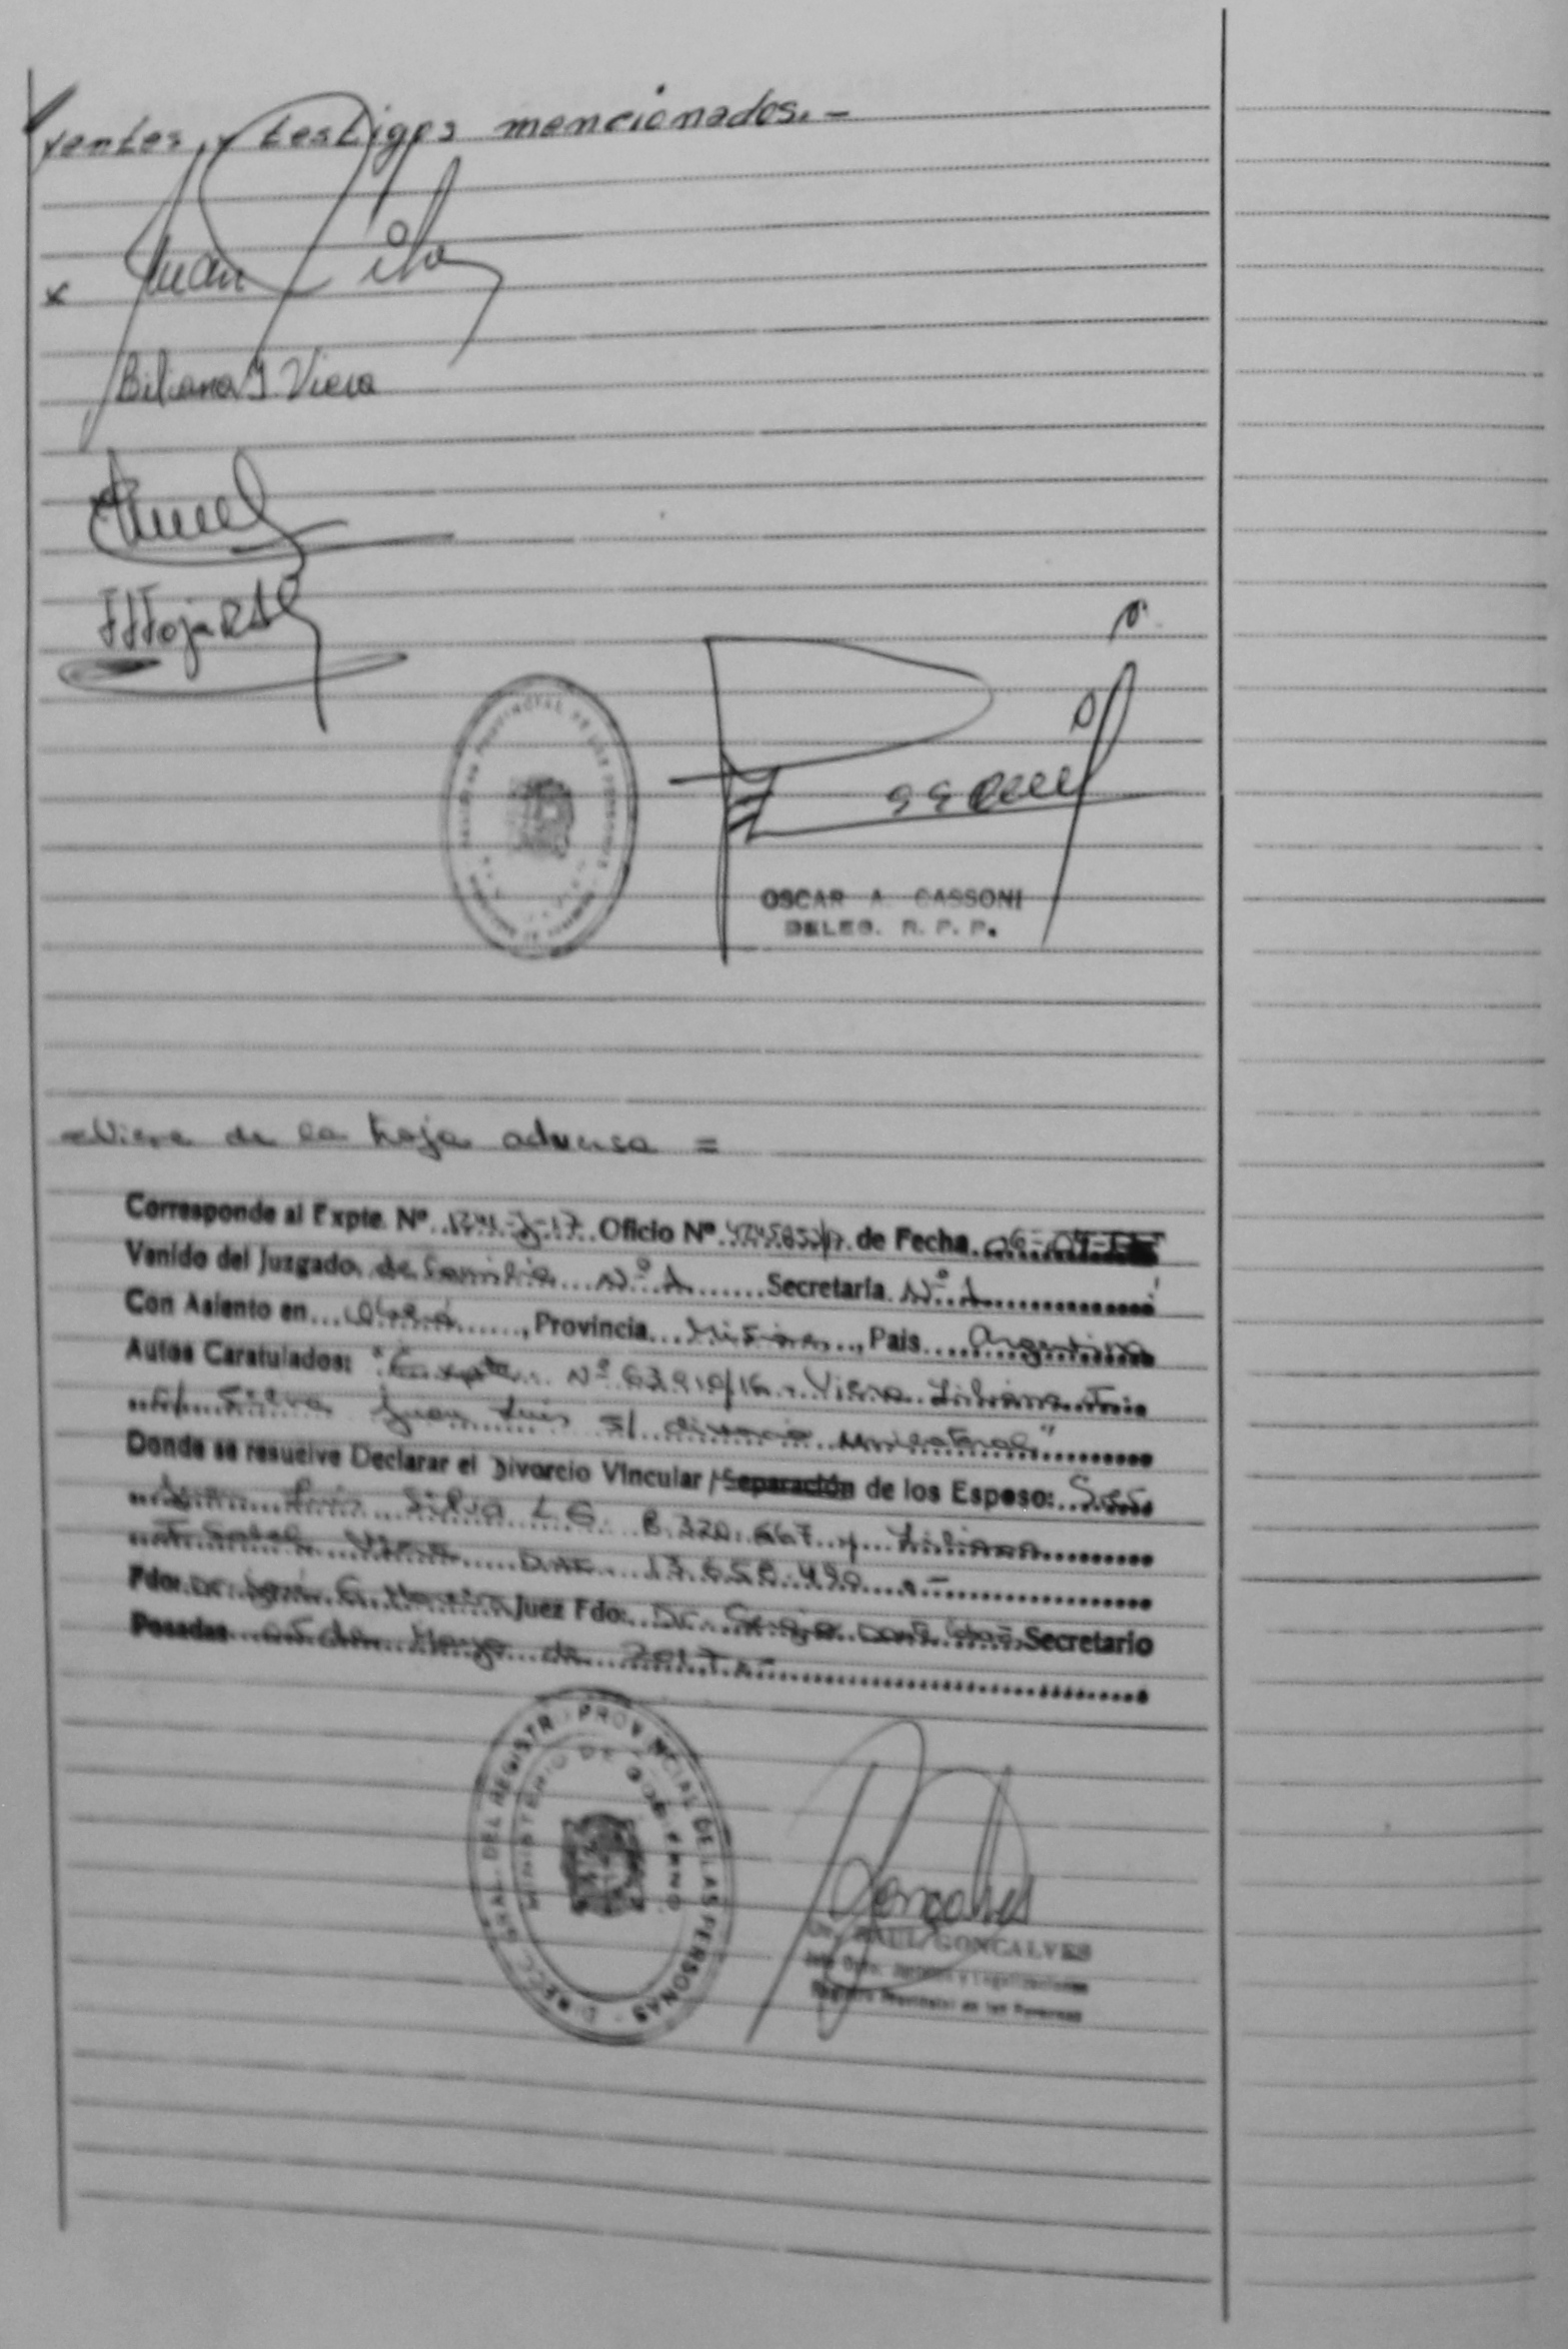 yentes, y testigos mencionados.-
x Juan Silva
Biliana I. Viera
OSCAR A. CASSONI
DELEG. R. P. P.
=Viene de la hoja adversa=
Corresponde al Expte. Nº 1241-J-17 Oficio Nº de Fecha 06-04-17
Venido del Juzgado de Familia Nº 1 Secretaría Nº 1
Con Asiento en Oberá, Provincia Misiones, País Argentina
Autos Caratulados: "Expte. Nº 63910/16 - Viera Liliana
c/ Silva Juan Luis s/ divorcio unilateral"
Donde se resuelve Declarar el Divorcio Vincular / Separación de los Esposo: Sres
Juan Luis Silva L.E. 8.320.667 y Liliana
Isabel Viera DNI 13.658.490.-
Fdo: Dr. José G. Moreira Juez Fdo: Dr. Sergio Secretario
Posadas 05 de Mayo de 2017.-
DIRECC. GRAL. DEL REGISTR PROVINCIAL DE LAS PERSONAS
MINISTERIO DE GOBIERNO
Goncalves
RAUL GONCALVES
Jefe Dpto. y Legalizaciones
Registro Provincial de las Personas